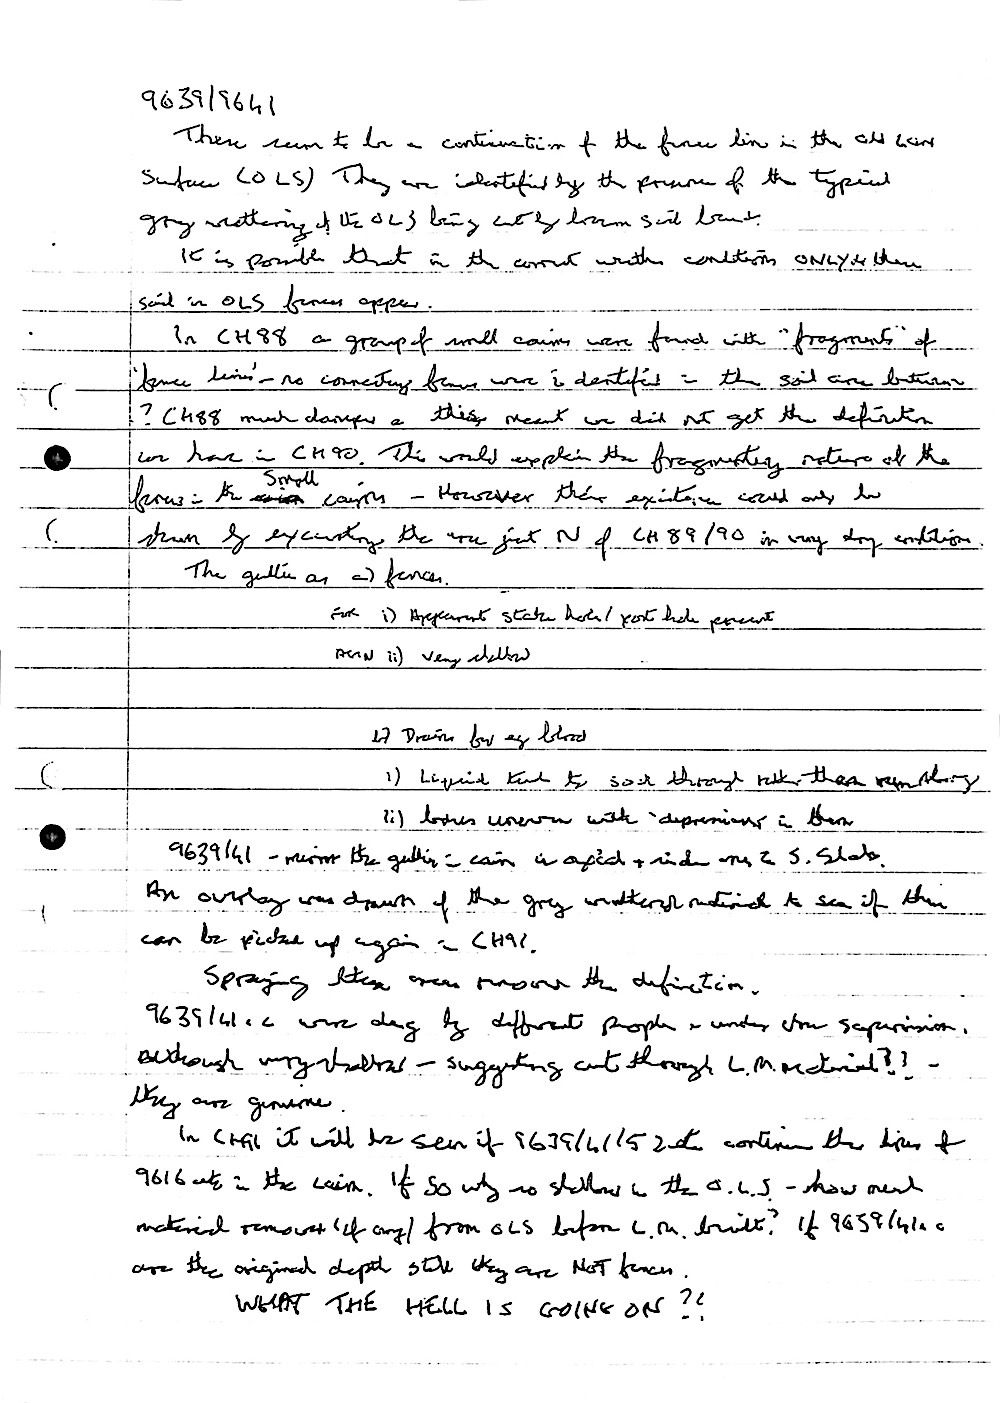 9639/9641
These seem to be a continuation of the fence line in the old land
surface (OLS) They are identified by the presence of the typical
grey mottering of the OLS being cut by brown soil bands.
It is possible that in the correct weather conditions ONLY is there
soil in OLS fences appear.
In CH88 a group of small cairns were found with "fragments" of
'fence lines' - no connecting fences were identified in the soil area between
? CH88 much damper & this meant we did not get the definition
we have in CH90. This would explain the fragmentary nature of the
fences in the small cairns - However their existence could only be
shown by excavating the area just N of CH89/90 in very dry conditions.
The gullies as a) fences.
FOR i) Apparent stake hole/post hole present
AGAIN ii) very shallow
b) Drains for eg blood
i) Liquid tend to soak through rather than run along
ii) bases uneven with 'depressions' in them
9639/41 - mirror the gullies in cairn S. Slab.
An overlay was drawn of the grey mottered material to see if they
can be picked up again in CH91.
Spraying these areas removes the definition.
9639/41 were dug by different people under close supervision.
Although very shallow - suggesting cut through L.M. material?? -
they are genuine.
In CH91 it will be seen if 9639/41/52 etc continue the lines of
9616 etc in the cairn. If so why so shallow in the O.L.S. - how much
material removed (if any) from OLS before L.M. built? If 9639/41
are the original depth still they are NOT fences.
WHAT THE HELL IS GOING ON?!